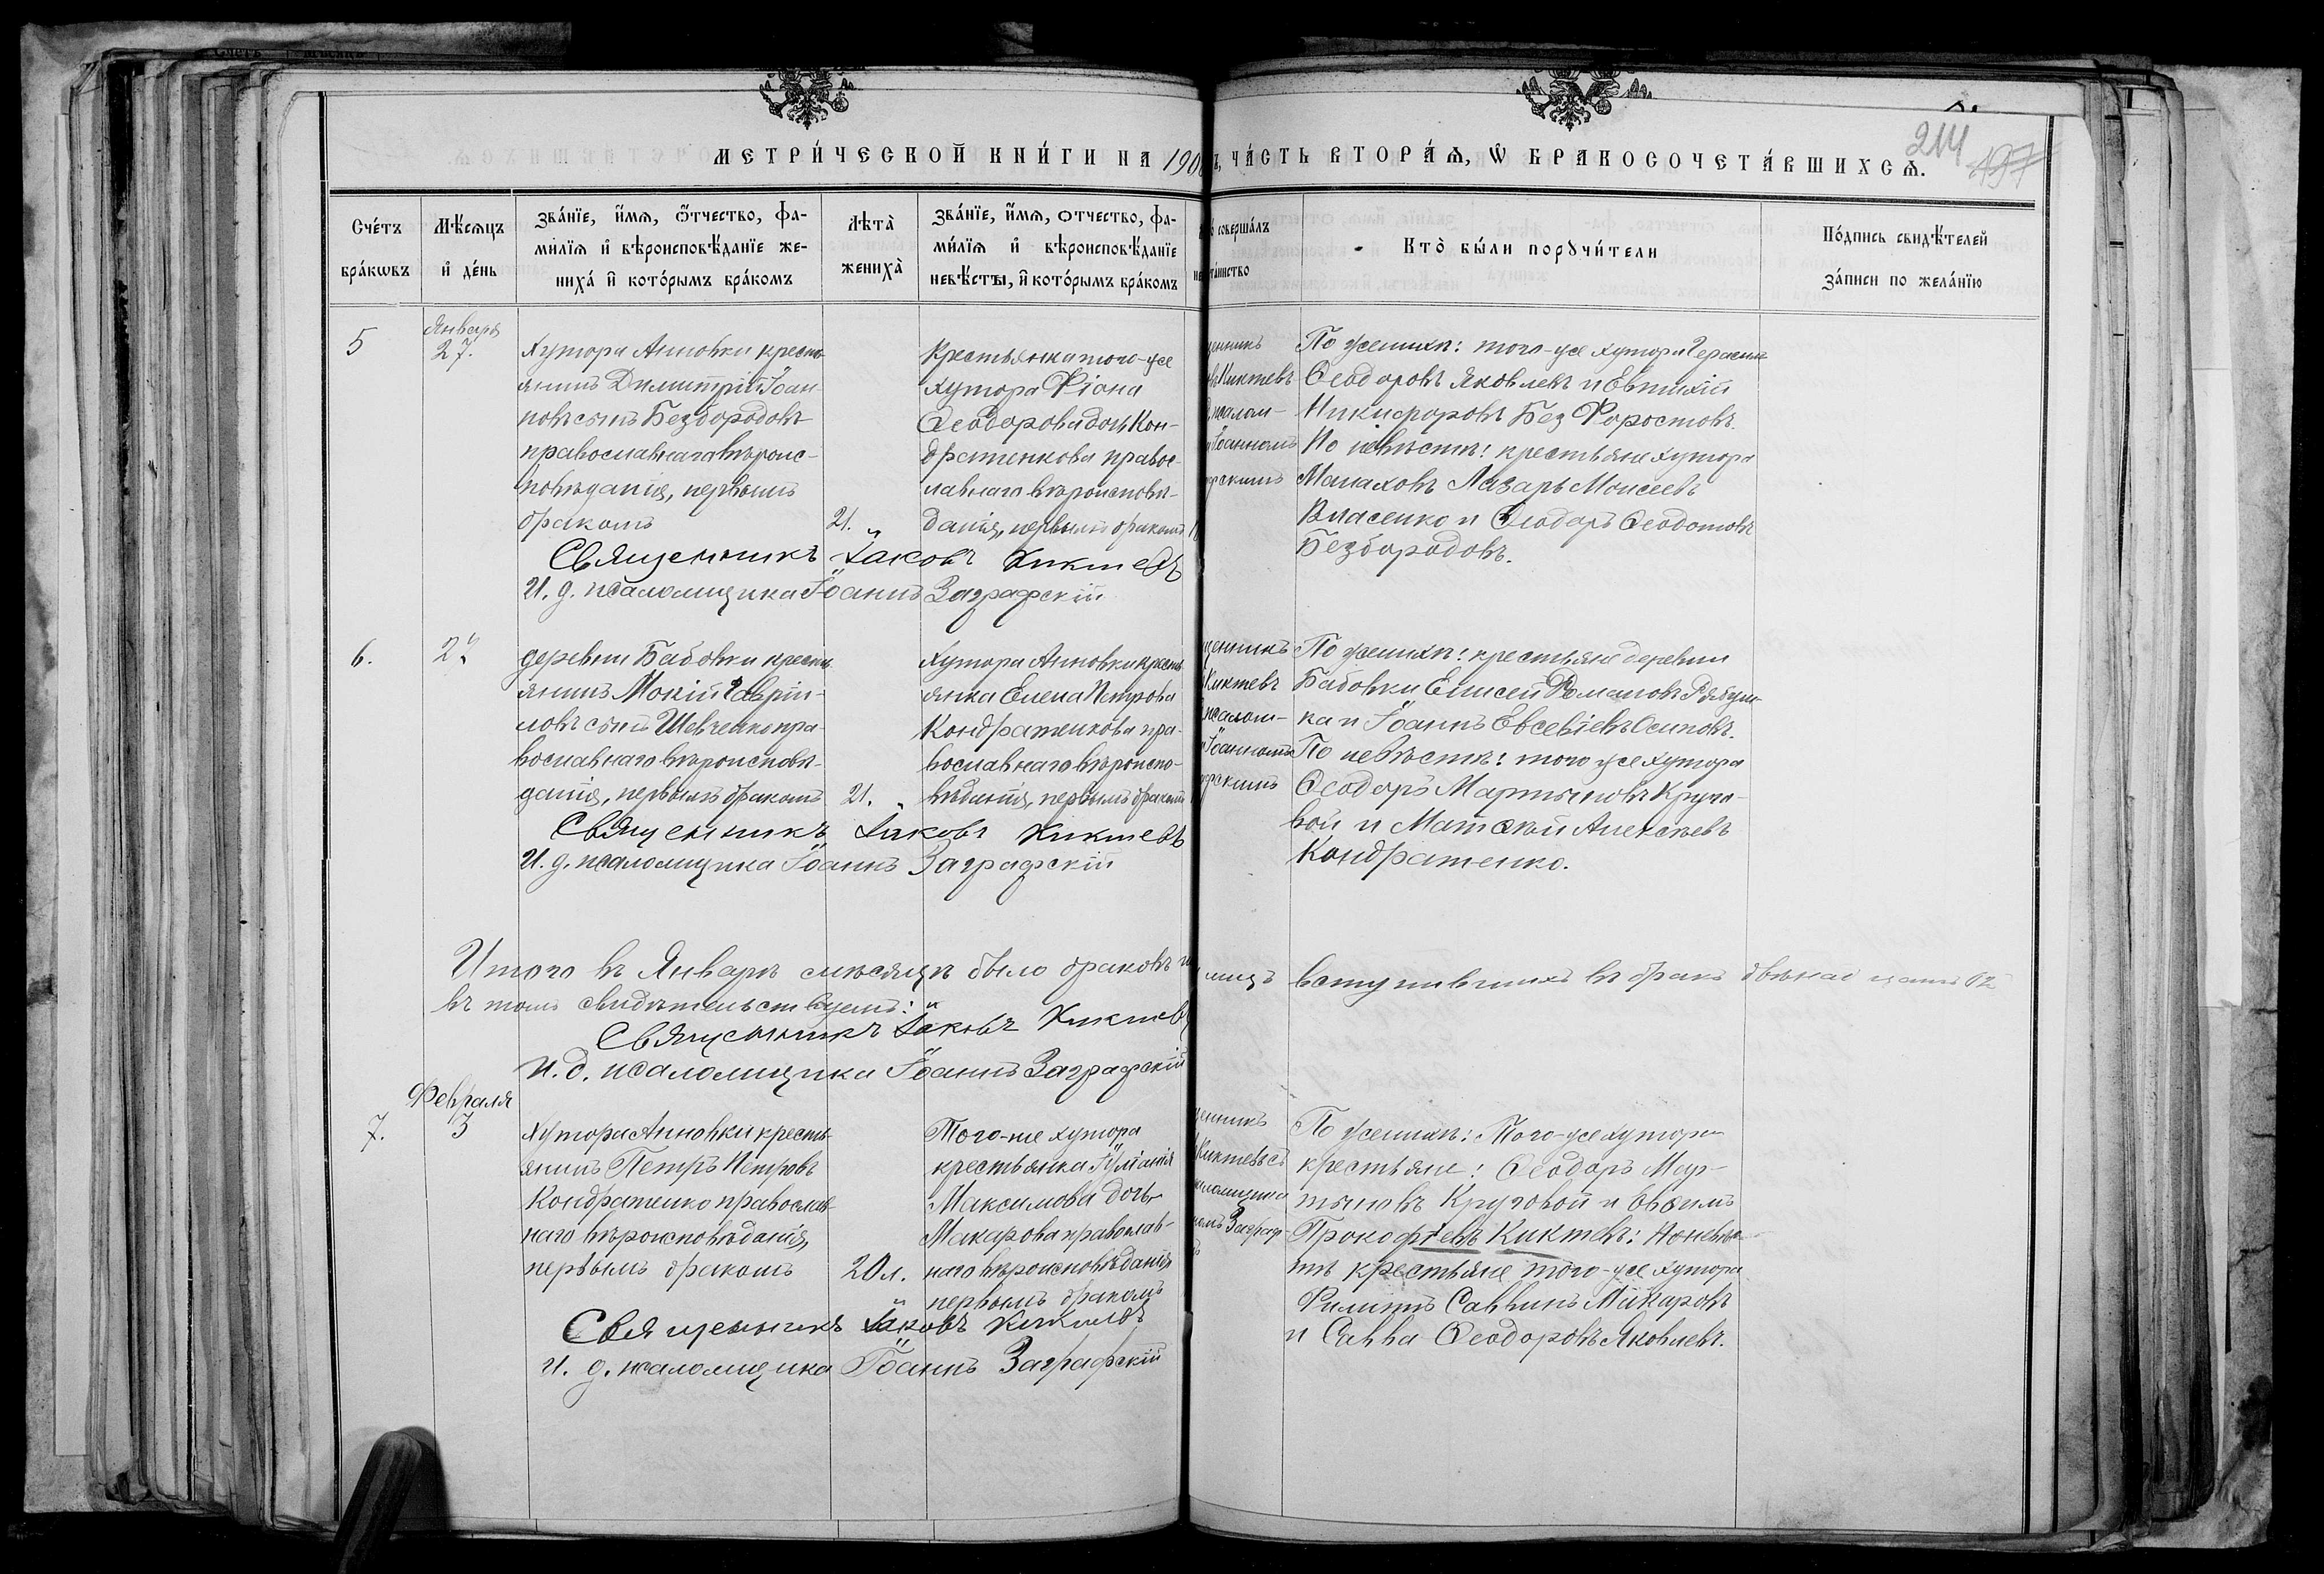 214
197
МЕТРИ́ЧЕСКОЙ КНИ́ГИ НА 190
Ъ, ЧА́СТЬ ВТОРА́Ѧ, Ѡ БРАКОСОЧЕТА́ВШИХСѦ.
Сче́тъ бра́кѡвъ
Мѣ́сѧцъ и҆ де́нь
Зва́нїе, и҆́мѧ, ѻ҆́тчество, фа-
ми́лїѧ и҆ вѣроисповѣ́данїе же-
ниха́ и҆ кото́рымъ бра́комъ
Лѣта̀ жениха̀
Зва́нїе, и҆́мѧ, отчество, фа-
ми́лїѧ и҆ вѣроисповѣ́данїе
невѣ́сты, и҆ кото́рымъ бра́комъ
соверша́лъ
та́инство
Кто̀ бы́ли порꙋчи́тели
По́дпись свидѣ́телей
за́писи по жела́нїю
5
Января
27.
Хутора Анновки кресть-
янинъ Димитрій Іоан-
новъ сынъ Безбородовъ
православнаго вѣроис-
повѣданія, первымъ
бракомъ
21.
Крестьянка того-же
хутора Фіона
Ѳеодорова дочь Кон-
дратенкова правос-
лавнаго вѣроисповѣ-
данія, первымъ бракомъ
щенникъ
Киктевъ
псалом-
Іоанномъ
фскимъ
По женихѣ: того-же хутора Герасимъ
Ѳеодоровъ Яковлевъ и Евтихій
Никифоровъ Без Форостовъ.
По невѣстѣ: крестьяне хутора
Малаховъ Лазарь Моисеевъ
Власенко и Ѳеодоръ Ѳеодотовъ
Безбородовъ.
Священникъ Іаковъ Киктевъ
И. д. псаломщика Іоаннъ Заграфскій
6.
27
деревни Бабовки кресть-
янинъ Мокій Гаврі-
ловъ сынъ Шевченко пра-
вославнаго вѣроисповѣ-
данія, первымъ бракомъ
21.
Хутора Анновки кресть-
янка Елена Петрова
Кондратенкова пра-
вославнаго вѣроиспо-
вѣданія, первымъ бракомъ
щенникъ
Киктевъ
псалом-
Іоанномъ
фскимъ
По женихѣ: крестьяне деревни
Бабовки Елисей Романовъ Рябуш-
ка и Іоаннъ Евсевіевъ Осиповъ.
По невѣстѣ: того же хутора
Ѳеодоръ Мартыновъ Круго-
вой и Матѳей Алексѣевъ
Кондратенко.
Священникъ Іаковъ Киктевъ
И. д. псаломщика Іоаннъ Заграфскій
Итого въ Январѣ мѣсяцѣ было браковъ
лицъ вступившихъ въ бракъ двѣнадцать
въ томъ свидѣтельствуемъ:
Священникъ Іаковъ Киктевъ
И. д. псаломщика Іоаннъ Заграфскій
Февраля
7.
3
Хутора Анновки кресть-
янинъ Петръ Петровъ
Кондратенко православ-
наго вѣроисповѣданія,
первымъ бракомъ
20 л.
Того-же хутора
крестьянка Іуліанія
Максимова дочь
Макарова православ-
наго вѣроисповѣданія
первымъ бракомъ
щенникъ
Киктевъ съ
псаломщика
номъ Заграф-
По женихѣ: Того-же хутора
крестьяне: Ѳеодоръ Мар-
тыновъ Круговой и Евѳимъ
Прокофіевъ Киктевъ: По невѣс-
тѣ крестьяне того-же хутора
Филиппъ Саввинъ Макаровъ
и Савва Ѳеодоровъ Яковлевъ.
Священникъ Іаковъ Киктевъ
И. д. псаломщика Іоаннъ Заграфскій